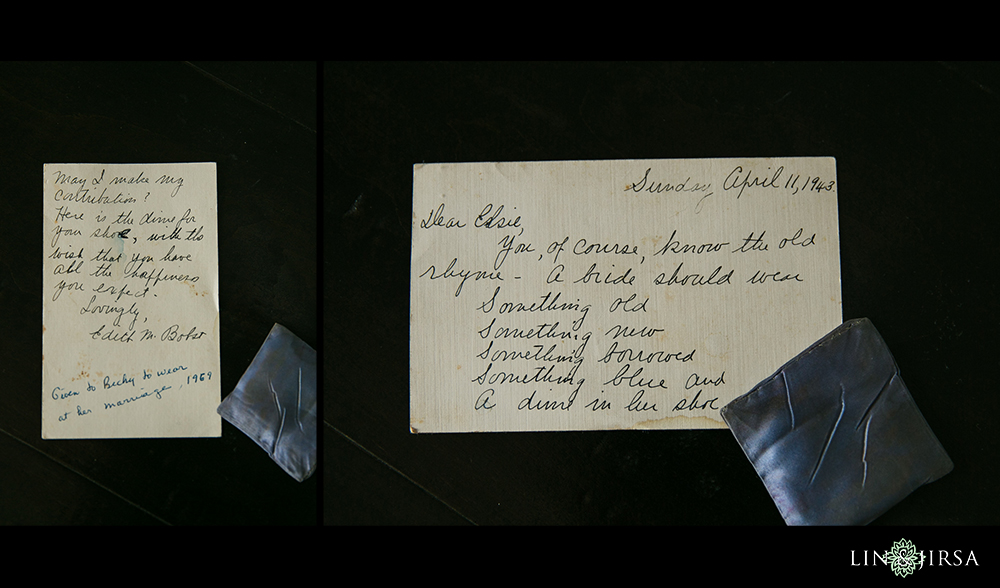 May I make my
Contribution?
Here is the dime for
your shoe, with the
wish that you have
all the happiness
you expect.
Lovingly,
Edith M. Bobst
Given to Becky to wear
at her marriage, 1969
Sunday, April 11, 1943
Dear Elsie,
You, of course, know the old
rhyme - A bride should wear
Something old
Something new
Something borrowed
Something blue and
A dime in her shoe
LIN & JIRSA